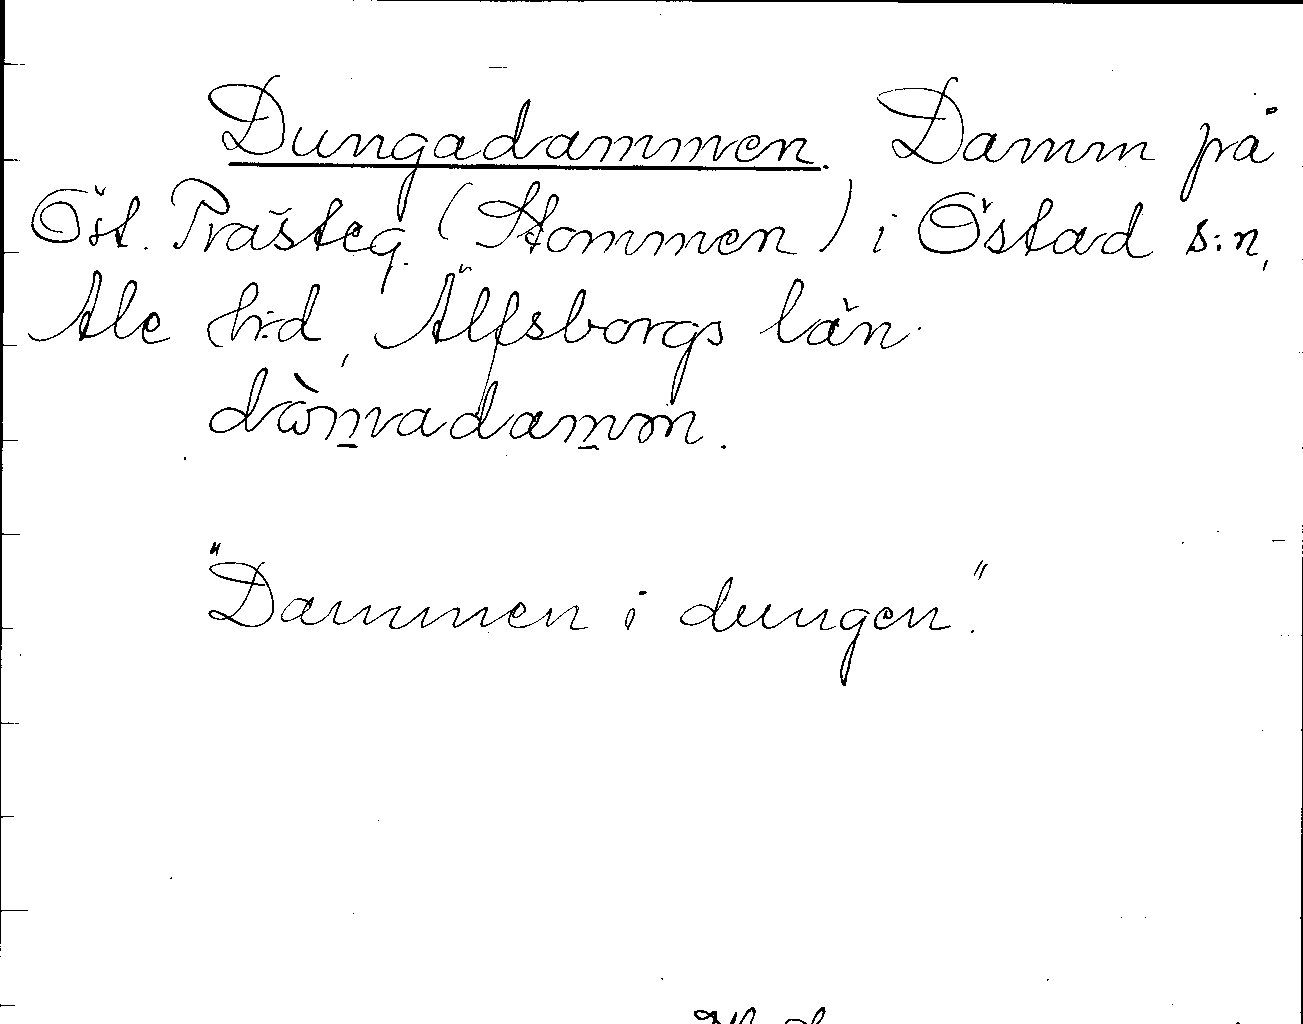 Dungadammen. Damm på
Öst. Prästeg. (Stommen) i Östad s:n,
Ale h:d, Älfsborgs län.
"Dammen i dungen".